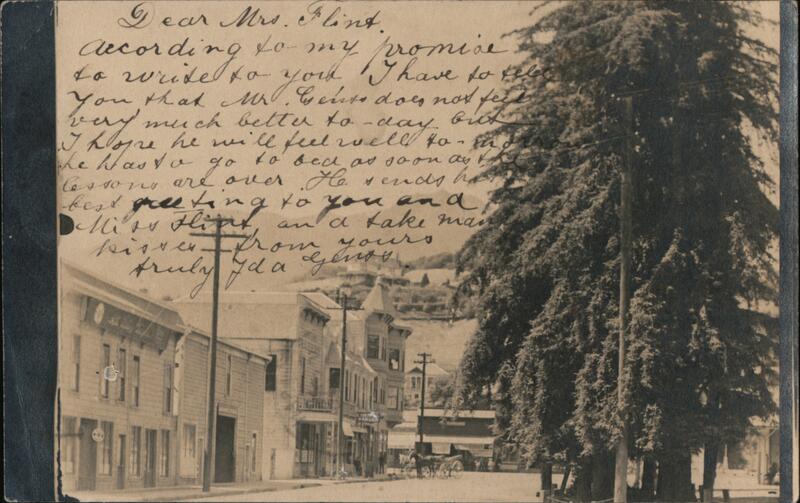 Dear Mrs. Flint,
according to my promise
to write to you I have to tell
you that Mr. Genss does not feel
very much better to-day but
I hope he will feel well to-morrow
he has to go to bed as soon as the
lessons are over. He sends his
best greeting to you and
Miss Flint, and take many
kisses from yours
truly Ida Genss